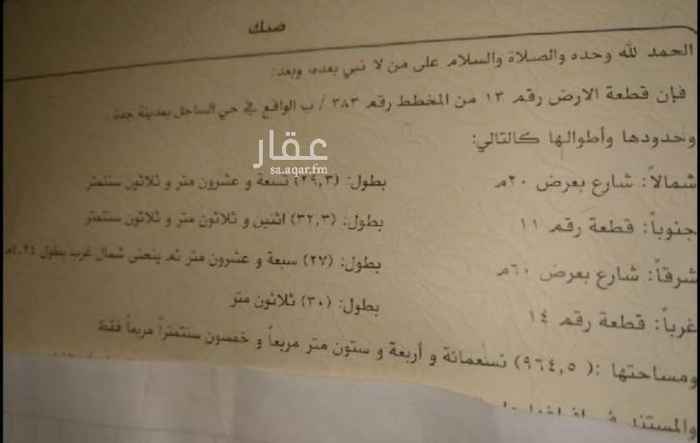 صك
الحمد لله وحده والصلاة والسلام على من لا نبي بعده، وبعد:
فإن قطعة الارض رقم ١٣ من المخطط رقم ٣٨٣ / ب الواقع في حي الساحل بمدينة جدة
وحدودها وأطوالها كالتالي:
شمالاً: شارع بعرض ٢٠م بطول: (٢٩,٣) تسعة و عشرون متر و ثلاثون سنتمتر
جنوباً: قطعة رقم ١١ بطول: (٣٢,٣) اثنين و ثلاثون متر و ثلاثون سنتمتر
شرقاً: شارع بعرض ٦٠م بطول: (٢٧) سبعة و عشرون متر ثم ينحني شمال غرب بطول ٤,٢٤م
غرباً: قطعة رقم ١٤ بطول: (٣٠) ثلاثون متر
ومساحتها :( ٩٦٤,٥) تسعمائة و أربعة و ستون متر مربعاً و خمسون سنتمتراً مربعاً فقط
والمستند في
عقار
sa.aqar.fm